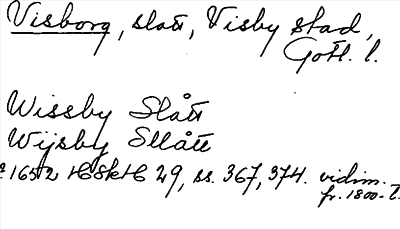 Visborg, slott, Visby stad,
Gotl. l.
Wissby Slått
Wijsby Sllått
c 1652 HSkH 29, ss. 367, 374. vidim.
fr. 1800-t.